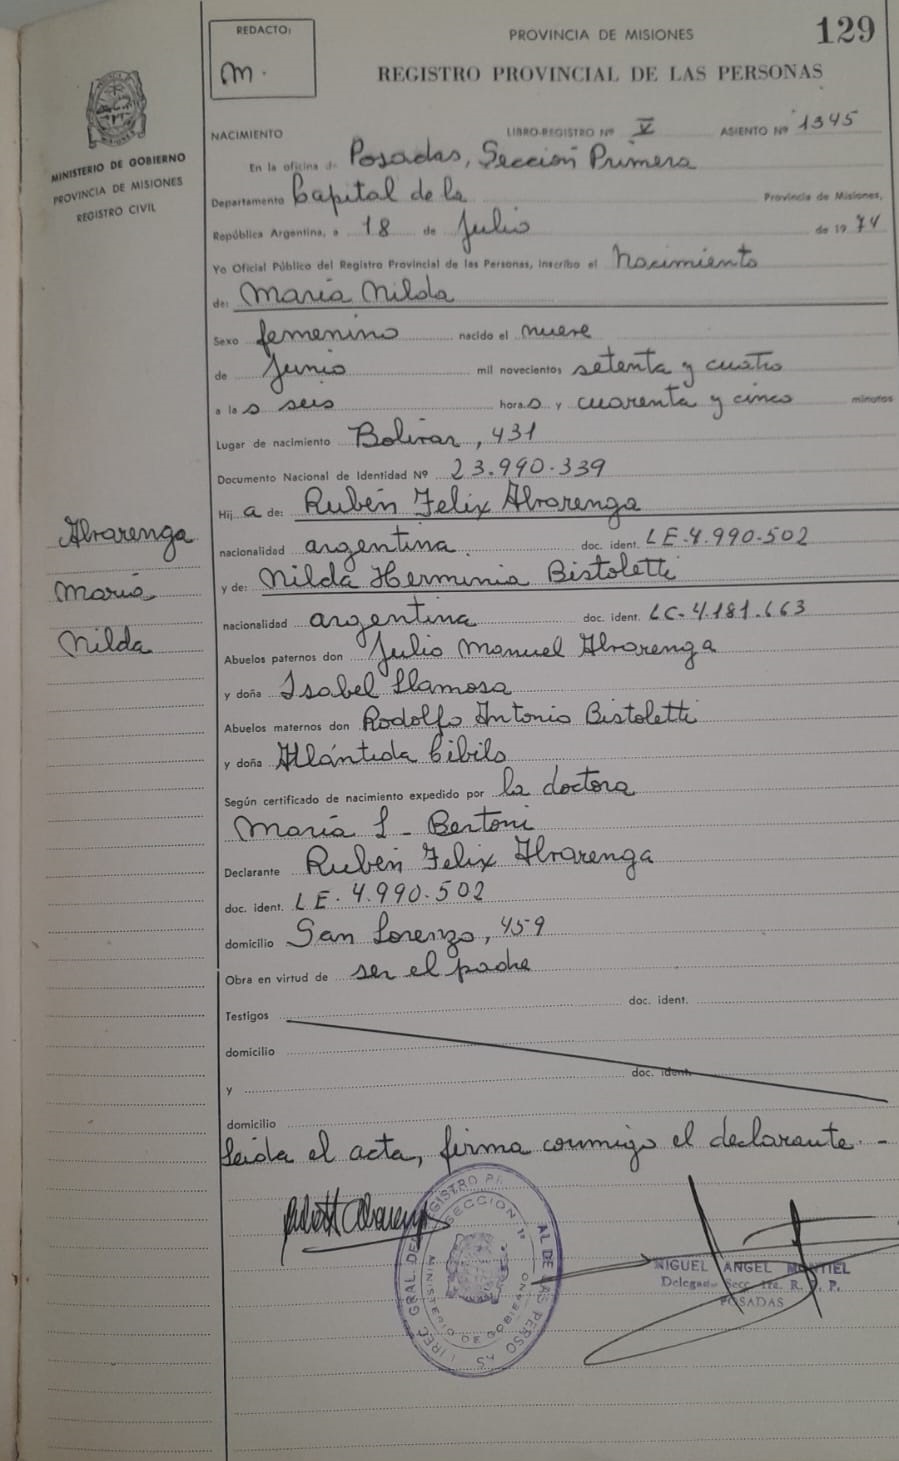 REDACTO:
M.
PROVINCIA DE MISIONES
129
REGISTRO PROVINCIAL DE LAS PERSONAS
MINISTERIO DE GOBIERNO
PROVINCIA DE MISIONES
REGISTRO CIVIL
NACIMIENTO LIBRO-REGISTRO Nº V ASIENTO Nº 1345
En la oficina de Posadas, Sección Primera
Departamento Capital de la Provincia de Misiones,
República Argentina, a 18 de Julio de 1974
Yo Oficial Público del Registro Provincial de las Personas, inscribo el Nacimiento
de: María Nilda
Sexo femenino nacido el nueve
de Junio mil novecientos setenta y cuatro
a las seis horas y cuarenta y cinco minutos
Lugar de nacimiento Bolívar, 431
Documento Nacional de Identidad Nº 23.990.339
Hija de: Rubén Felix Alvarenga
nacionalidad argentina. doc. ident. LE-4.990-502
y de: Nilda Herminia Bistoletti
nacionalidad argentina doc. ident. LC-4.181.663
Abuelos paternos don Julio Manuel Alvarenga
y doña Isabel Llamosa
Abuelos maternos don Rodolfo Antonio Bistoletti
y doña Atlántida Cibils
Según certificado de nacimiento expedido por la doctora
María L - Bertoni
Declarante Rubén Felix Alvarenga
doc. ident. LE. 4.990.502
domicilio San Lorenzo, 459
Obra en virtud de ser el padre
Testigos doc. ident.
domicilio
y doc. ident.
domicilio
Leída el acta, firma conmigo el declarante -
Alvarenga
María
Nilda
MIGUEL ANGEL MONTIEL
Delegado Secc. 1ra. R. P. P.
POSADAS
SECCION 1ª
MINISTERIO DE GOBIERNO